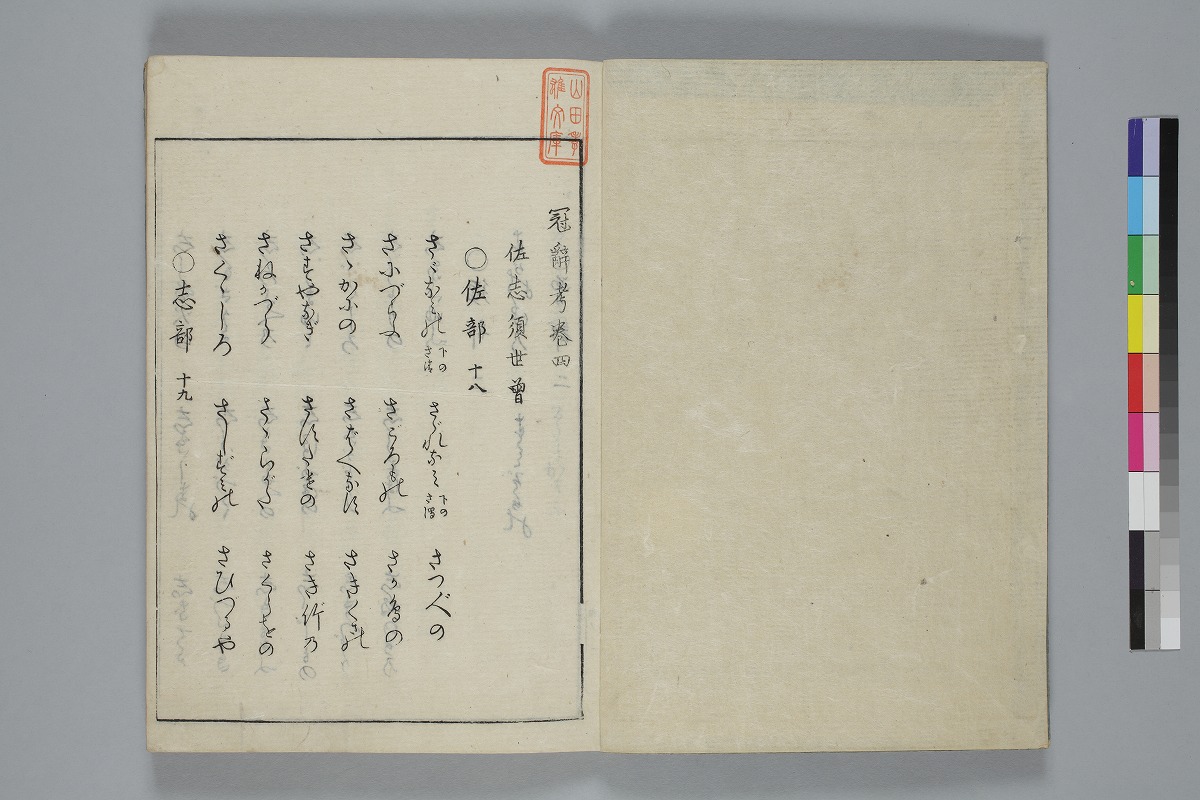 山田孝
雄文庫
冠辭考卷四
佐志須世曾
○佐部 十八
さゞなみの 下の さ さゞれなみ 下の さ さつべの
さにづらふ さごろもの さか鳥の
さゝがにの さばへなす さきくさの
さすやなぎ さすたけの さき竹乃
さねかづら さゝらがた さくらをの
さくくしろ さしずみの さひづるや
○志部 十九